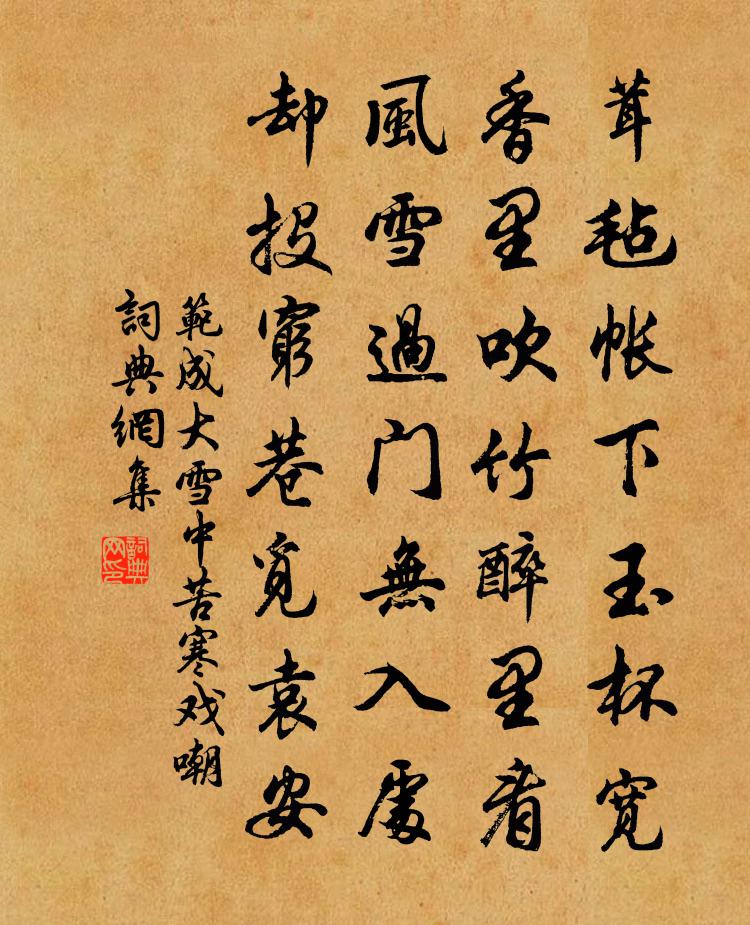 茸毡帐下玉杯宽
香里吹竹醉里看
風雪過门無入處
却投窮巷覓袁安
範成大雪中苦寒戏嘲
詞典網集
詞典网印